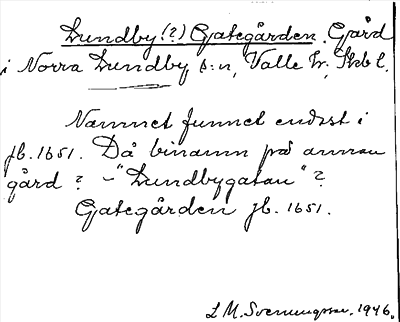 Lundby(?) Gategården. Gård
i Norra Lundby s:n, Valle hr, Skbl.
Namnet funnet endast i
jb. 1651. Då binamn på annan
gård? – "Lundbygatan"?
Gategården jb. 1651.
L M. Svenungsson. 1946.